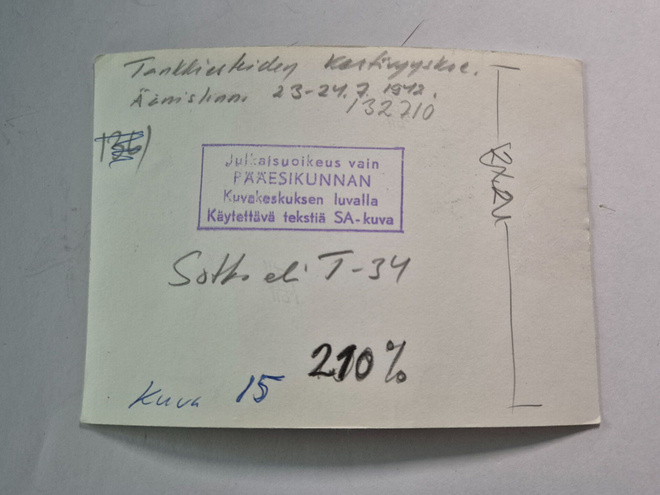 Tankkiesteiden kestävyyskoe.
Äänislinna 23-24.7.1942.
132710
Julkaisuoikeus vain
PÄÄESIKUNNAN
Kuvakeskuksen luvalla
Käytettävä tekstiä SA-kuva
Sotka eli T-34
210%
Kuva 15